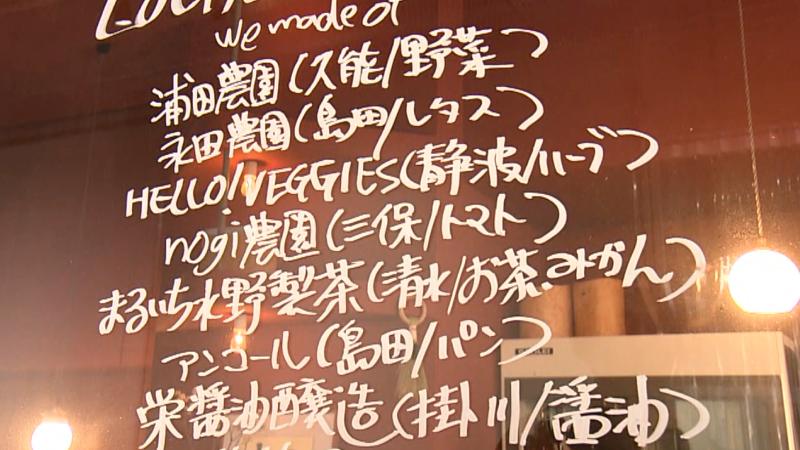 we made of
浦田農園(久能/野菜)
永田農園(島田/レタス)
HELLO!VEGGIES(静波/ハーブ)
nogi農園(三保/トマト)
まるいち水野製茶(清水/お茶.みかん)
アンコール(島田/パン)
栄醤油醸造(掛川/醤油)